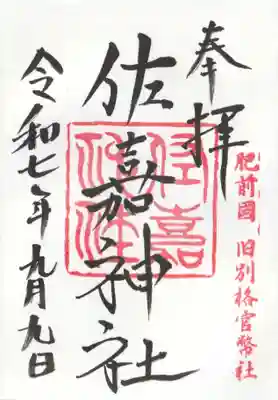 奉拝
肥前國 旧別格官幣社
佐嘉神社
令和七年九月九日